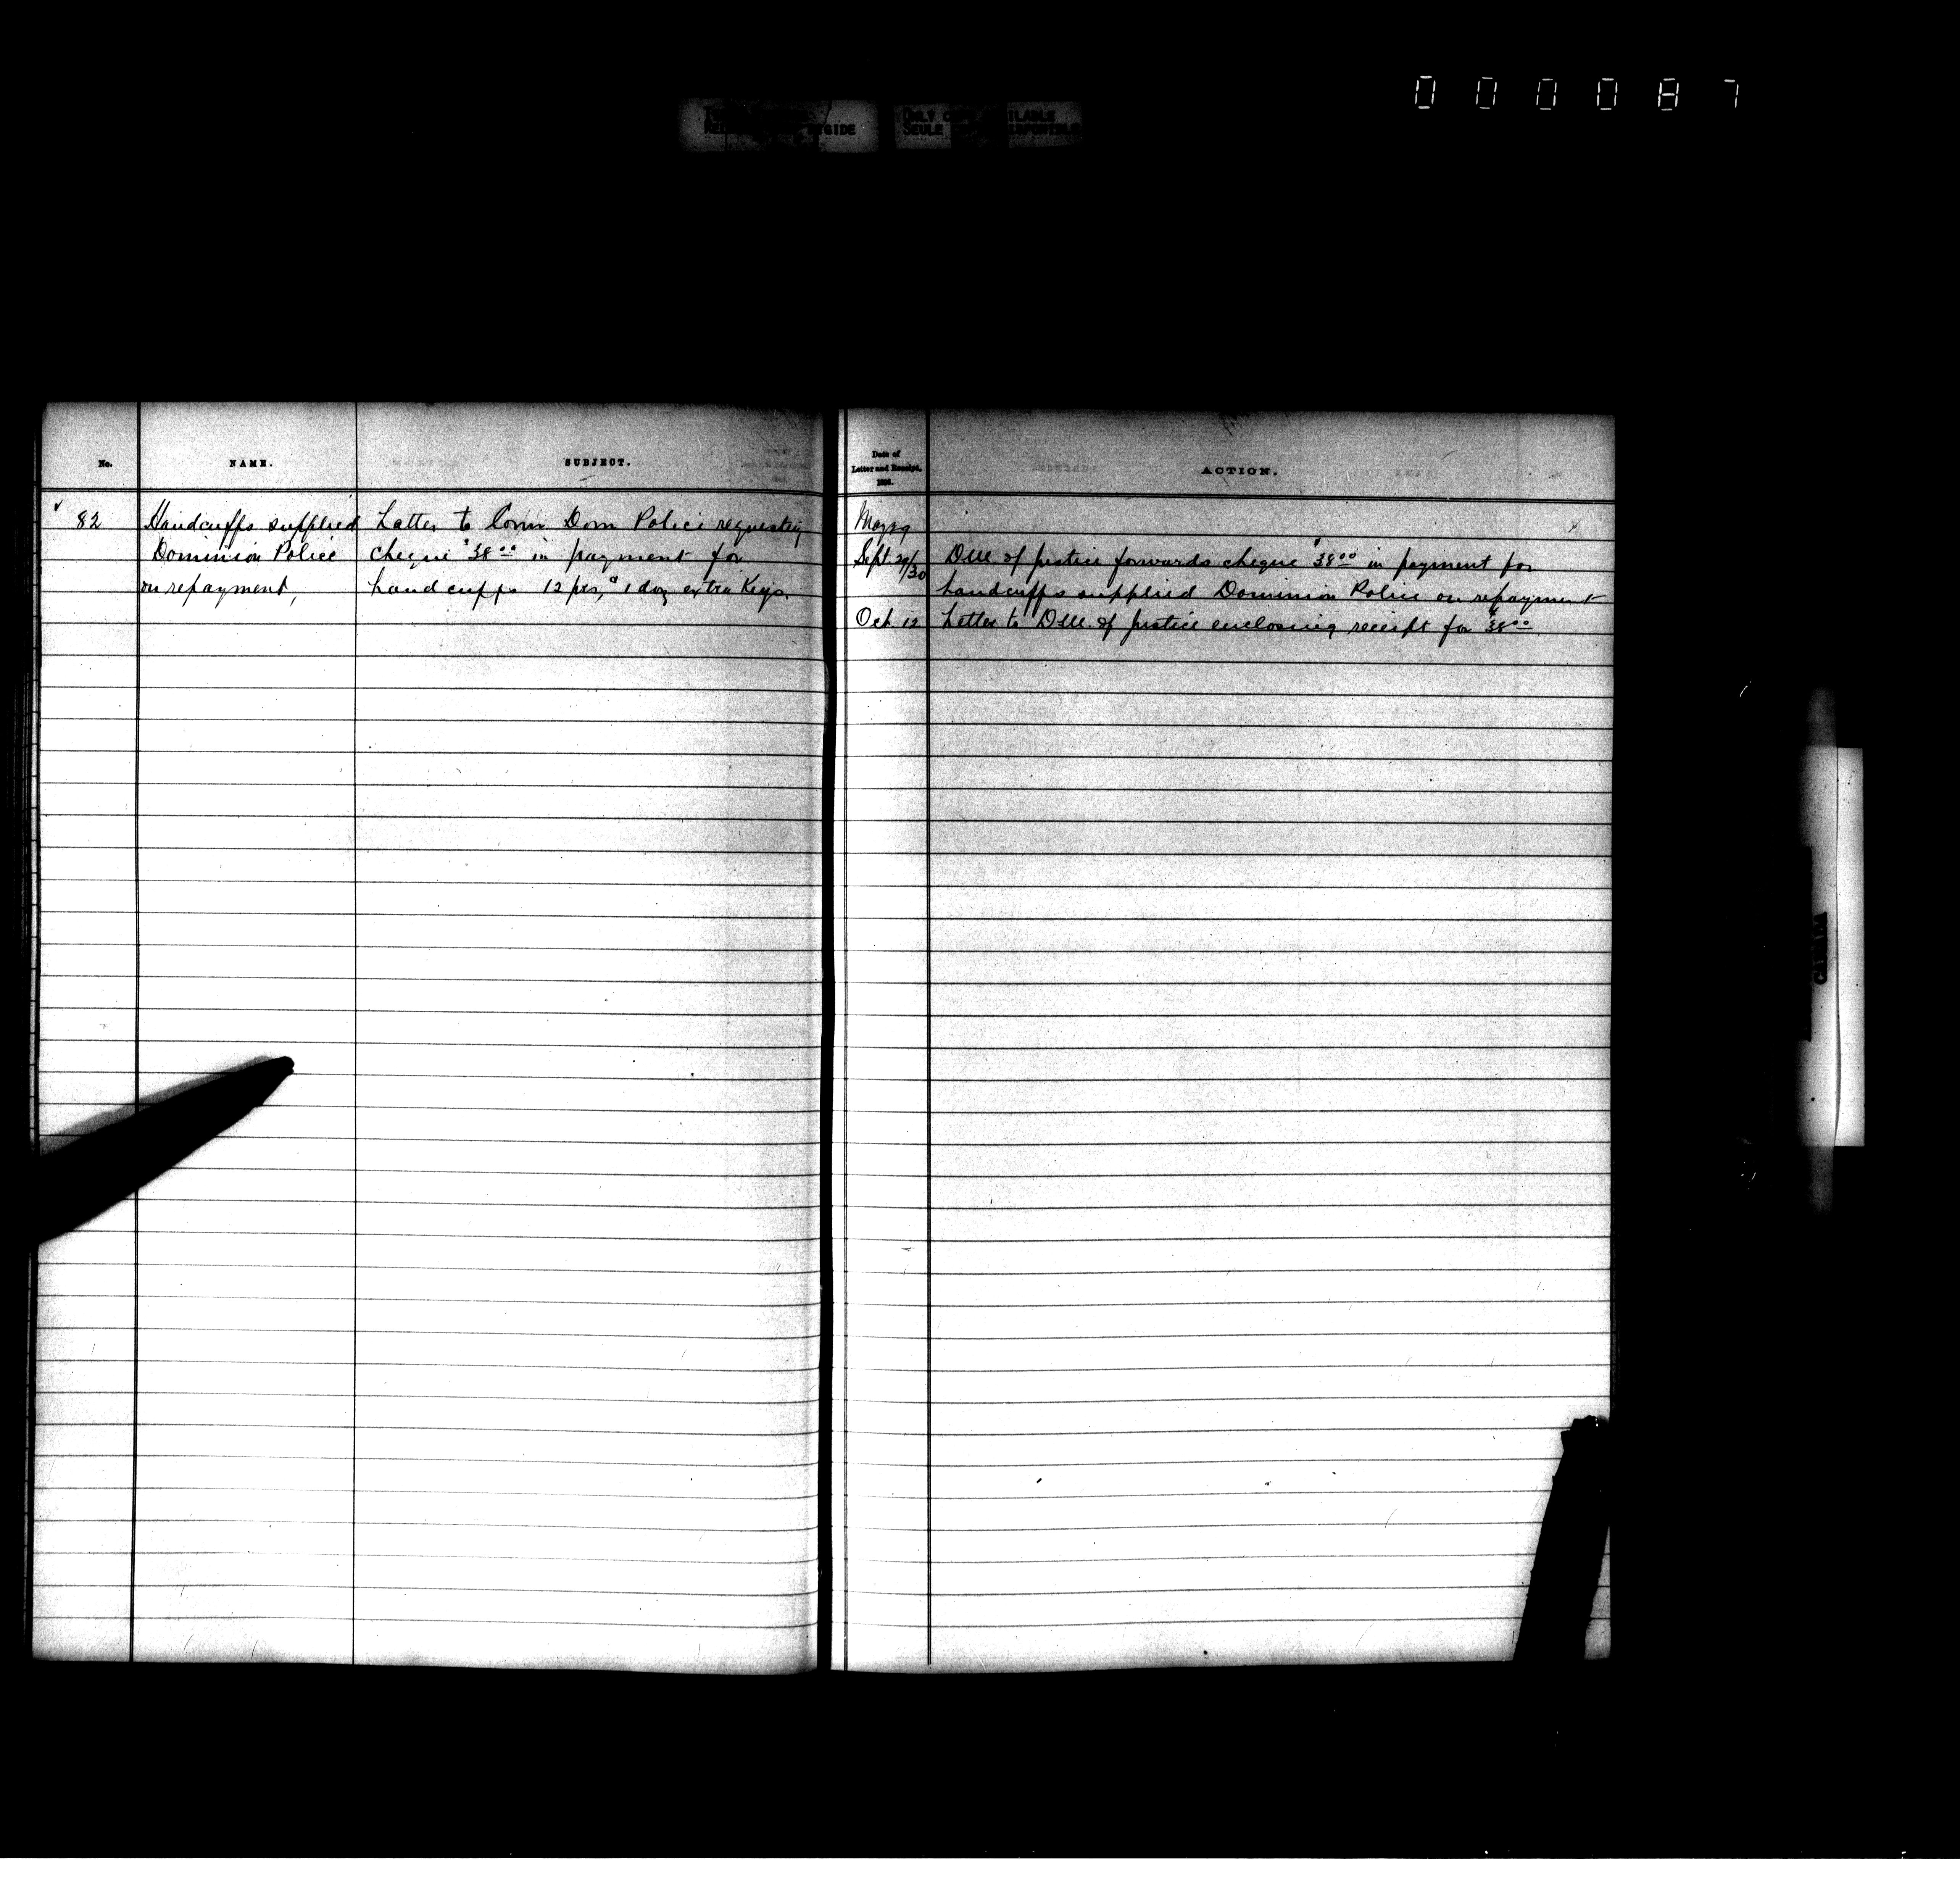 000087
ONLY COPY AVAILABLE
SEULE
No.
NAME.
SUBJECT.
Date of
Letter and Receipt,
ACTION.
82
Handcuffs supplied
Dominion Police
on repayment,
Letter to Comr Dom Police requesting
cheque $38.00 in payment for
handcuffs 12 prs, & 1 doz extra Keys.
May 29
Sept. 29/30
D.M. of Justice forwards cheque $38.00 in payment for
handcuffs supplied Dominion Police on repayment
Oct. 12
Letter to D.M. of Justice enclosing receipt for $38.00